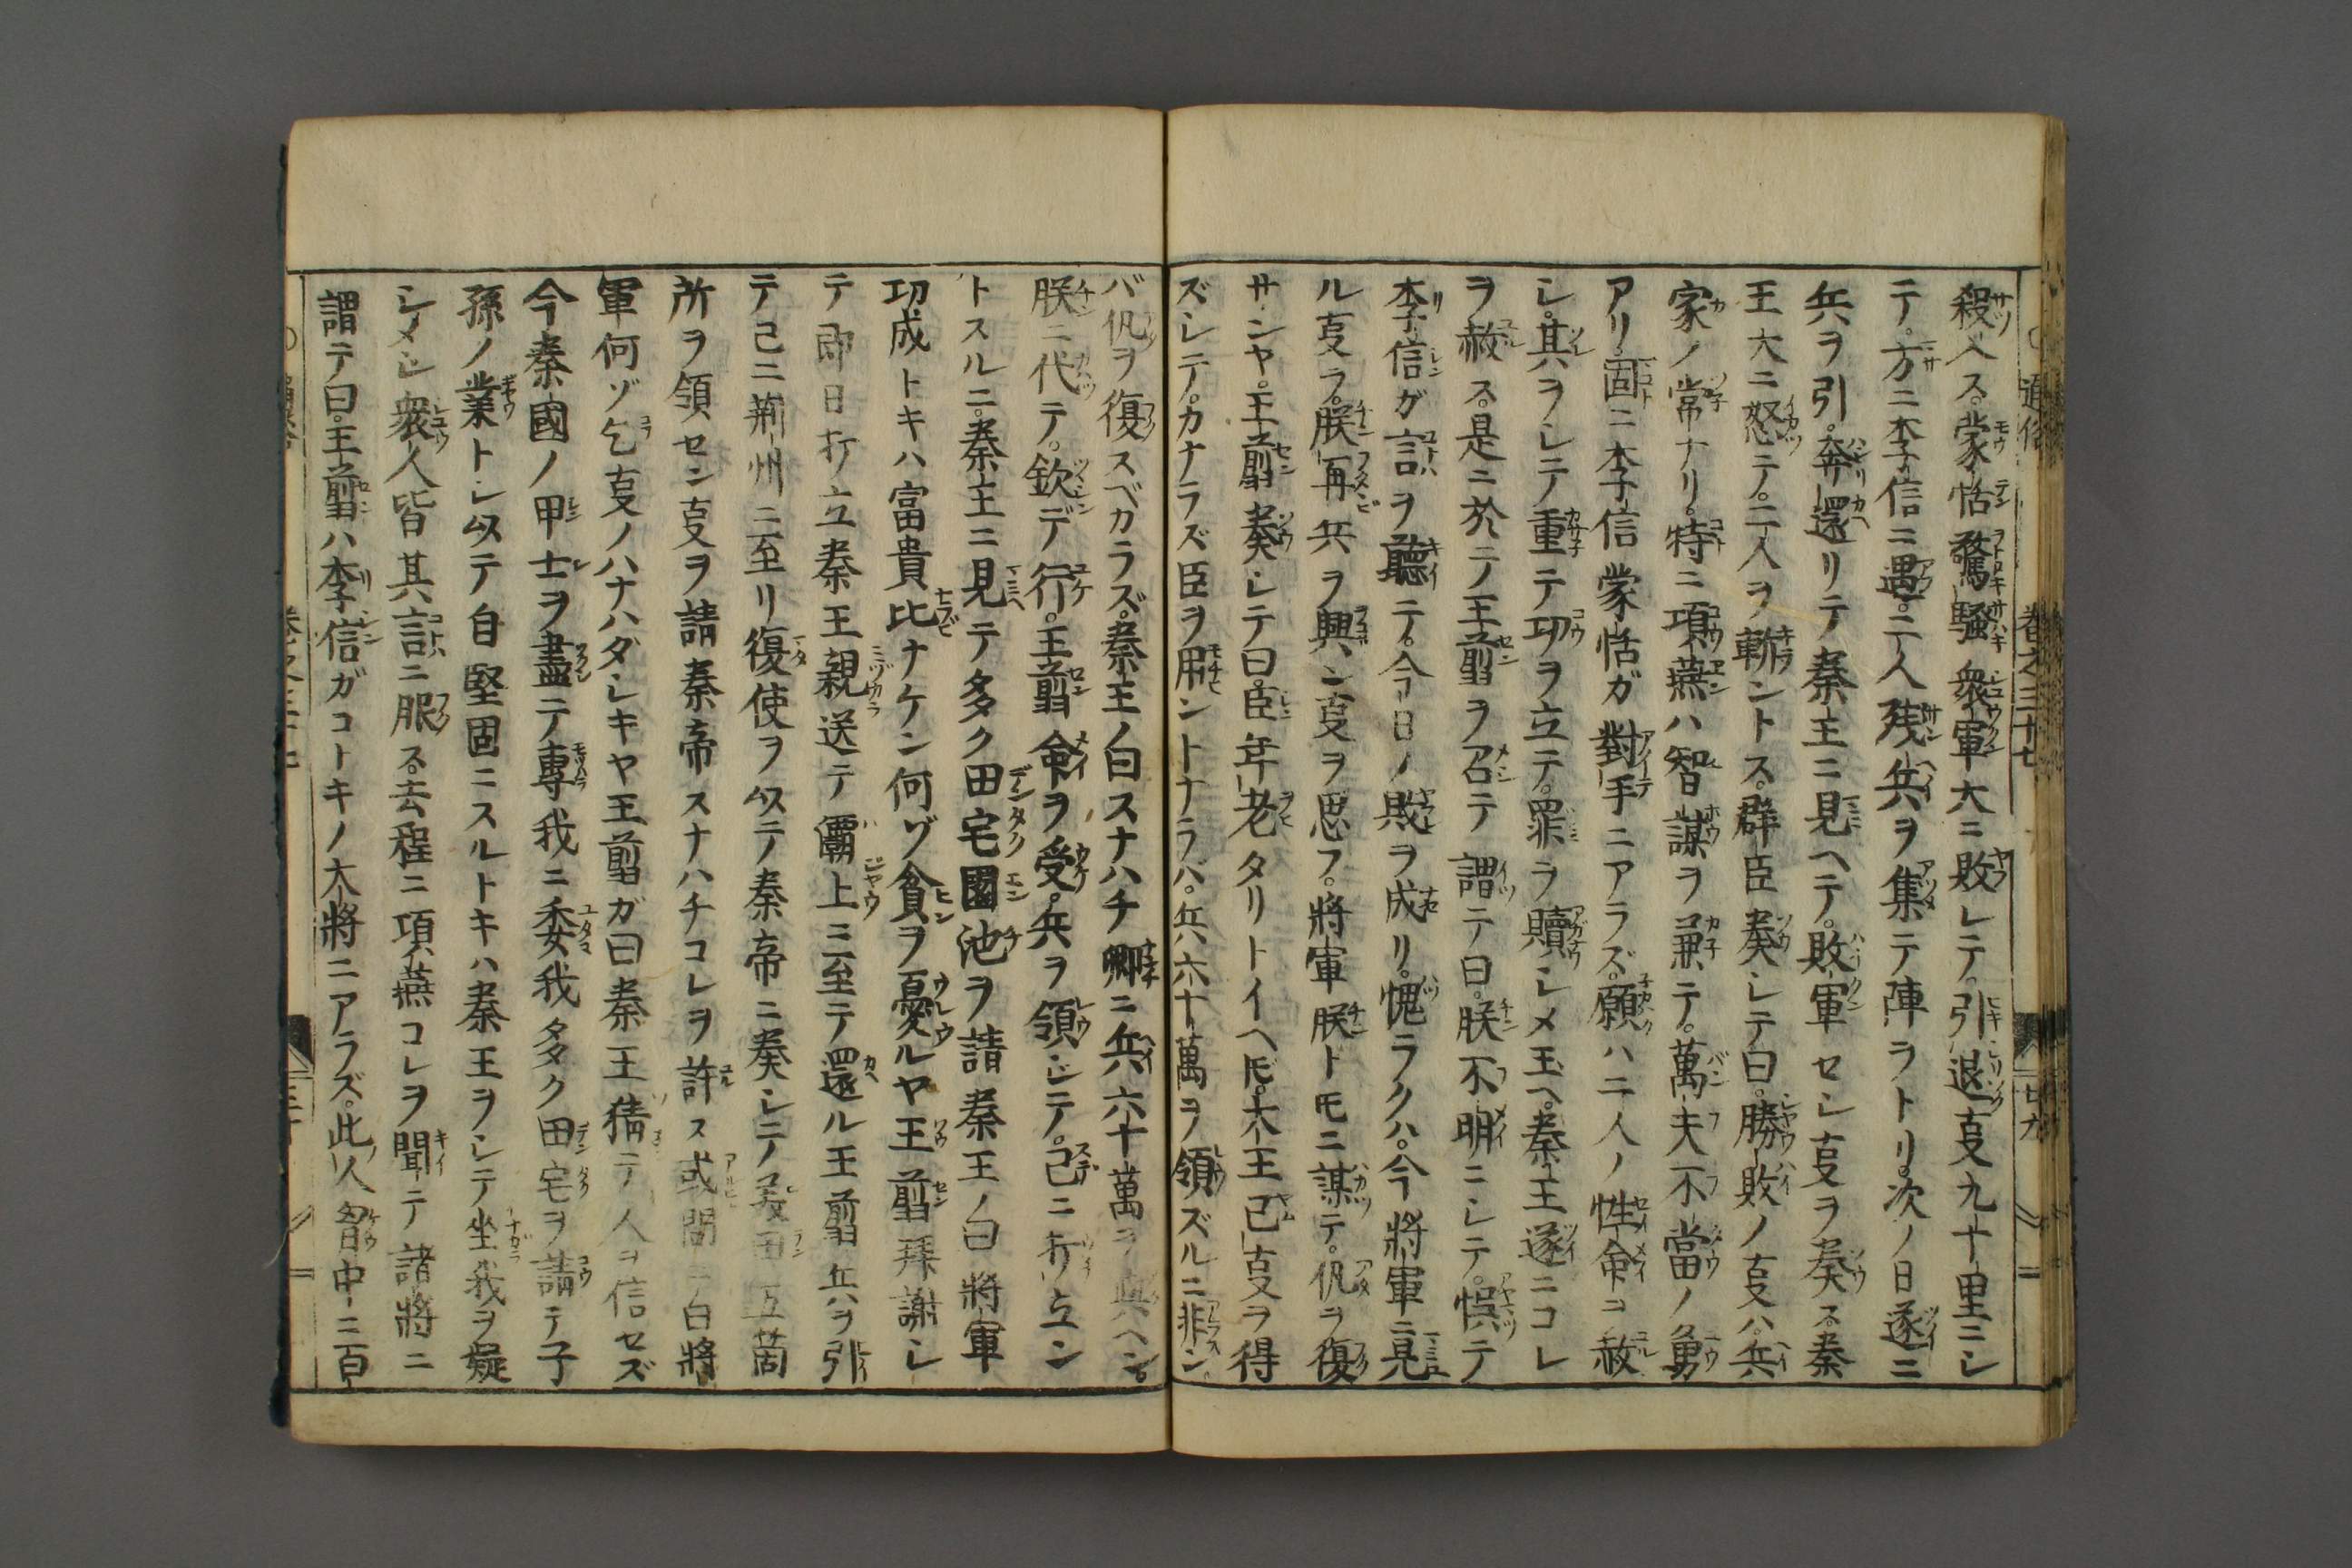 通俗 巻之三十七 廿九
殺入ス。蒙恬驚騒衆軍大ニ敗シテ。引退㕝九十里ニシ
テ。方ニ李信ニ遇。二人残兵ヲ集テ陣ヲトリ。次ノ日遂ニ
兵ヲ引。奔還リテ秦王ニ見ヘテ。敗軍セシ㕝ヲ奏ス。秦
王大ニ怒テ。二人ヲ斬ントス。群臣奏シテ曰。勝敗ノ㕝ハ。兵
家ノ常ナリ。特ニ項燕ハ智謀ヲ兼テ。萬夫不當ノ勇
アリ固ニ李信蒙恬ガ對手ニアラズ。願ハ二人ノ性命ヲ赦
シ。其ヲシテ重テ功ヲ立テ。罪ヲ贖シメ玉ヘ。秦王遂ニコレ
ヲ赦ス。是ニ於テ王翦ヲ召テ謂テ曰。朕不明ニシテ。悞テ
李信ガ言ヲ聽テ。今日ノ敗ヲ成リ。愧ラクハ。今將軍ニ見
ル㕝ヲ。朕再兵ヲ興ン㕝ヲ思フ。將軍朕トモニ謀テ。仇ヲ復
サンヤ。王翦奏シテ曰。臣年老タリトイヘ𪜈。大王已㕝ヲ得
ズシテ。カナラズ臣ヲ用ントナラバ。兵六十萬ヲ領ズルニ非ン
バ仇ヲ復スベカラズ。秦王ノ曰スナハチ卿ニ兵六十萬ヲ與ヘン。
朕ニ代テ。欽デ行。王翦命ヲ受。兵ヲ領シテ。已ニ打立ン
トスルニ。秦王ニ見テ多ク田宅園池ヲ請秦王ノ曰將軍
功成トキハ富貴比ナケン何ゾ貧ヲ憂ルヤ王翦拜謝シ
テ即日打立秦王親送テ灞上ニ至テ還ル王翦兵ヲ引
テ已ニ荊州ニ至リ復使ヲ以テ秦帝ニ奏シテ美田五箇
所ヲ領セン㕝ヲ請秦帝スナハチコレヲ許ス或問テ曰將
軍何ゾ乞㕝ノハナハダシキヤ王翦ガ曰秦王猜テ人ヲ信セズ
今秦國ノ甲士ヲ盡テ專我ニ委我多ク田宅ヲ請テ子
孫ノ業トシ以テ自堅固ニスルトキハ秦王ヲシテ坐我ヲ疑
シメシ衆人皆其言ニ服ス去程ニ項燕コレヲ聞テ諸將ニ
謂テ曰。王翦ハ李信ガコトキノ大將ニアラズ。此人智中ニ百